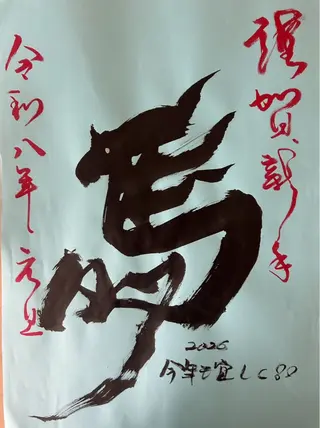 謹賀新年
馬
令和八年元旦
2026
今年も宜しく